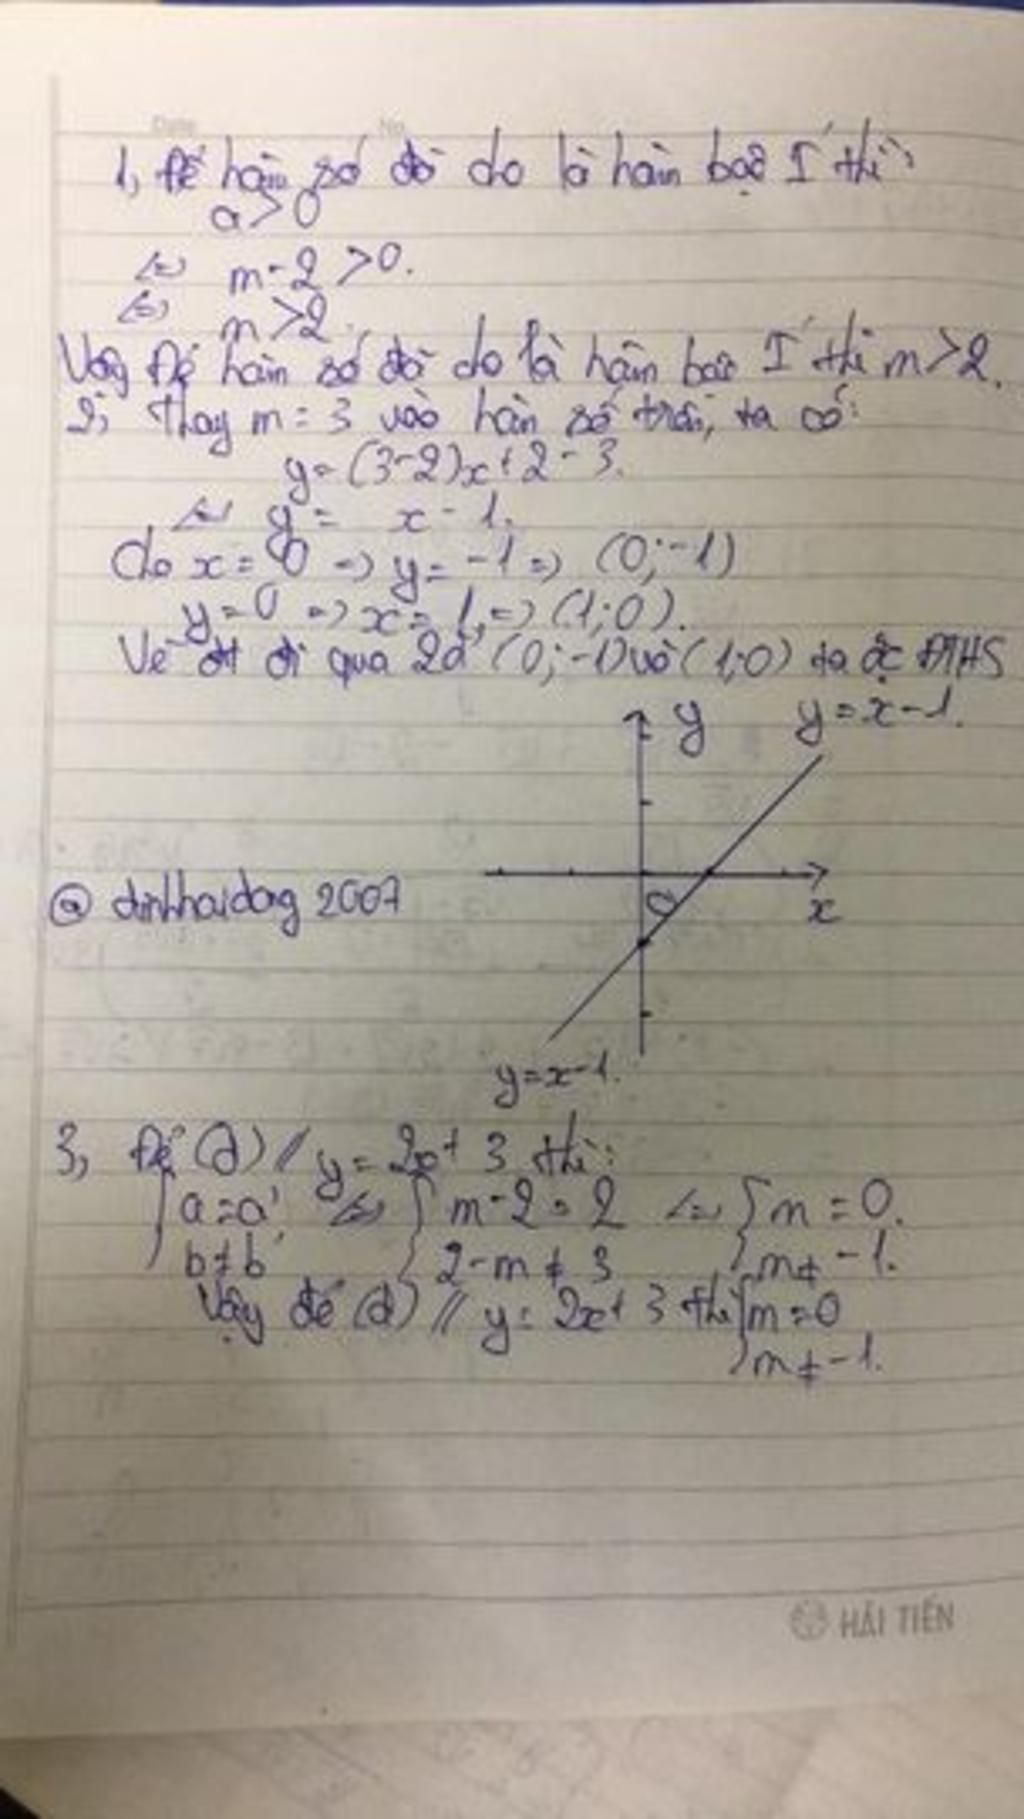 Date No
1, Để hàm số đã cho là hàm bậc I thì:
a > 0
<=> m - 2 > 0.
<=> m > 2.
Vậy để hàm số đã cho là hàm bậc I thì m > 2.
2, Thay m = 3 vào hàm số trên, ta có:
y = (3-2)x + 2 - 3.
<=> y = x - 1.
Cho x = 0 => y = -1 => (0; -1)
y = 0 => x = 1 => (1; 0).
Vẽ đt đi qua 2đ (0; -1) và (1; 0) ta đc ĐTHS
y y = x - 1.
@ dinhhaidong 2007
O x
y = x - 1.
3, Để (d) // y = 2x + 3 thì:
{ a = a' <=> { m - 2 = 2 <=> { m = 0.
b ≠ b' 2 - m ≠ 3 m ≠ -1.
Vậy để (d) // y = 2x + 3 thì { m = 0
m ≠ -1.
HẢI TIẾN